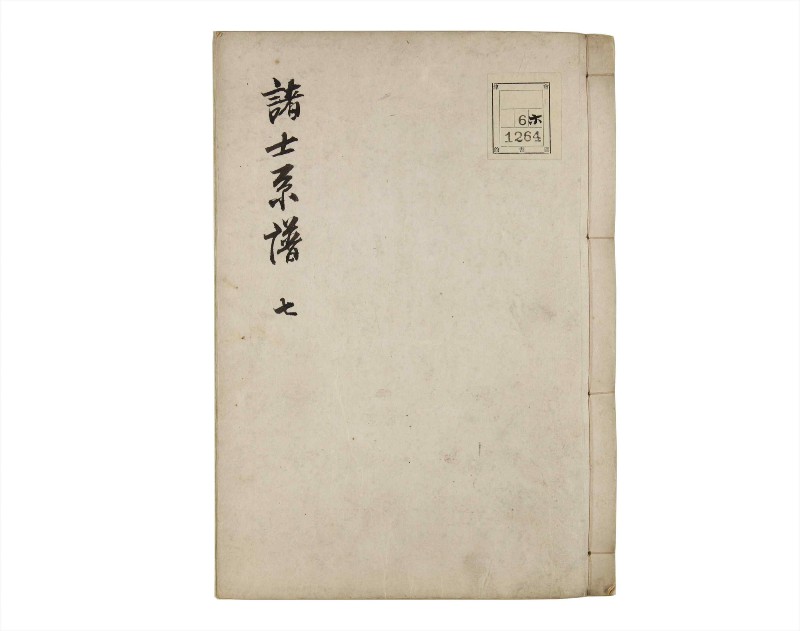 諸士系譜 七
6 六
1264